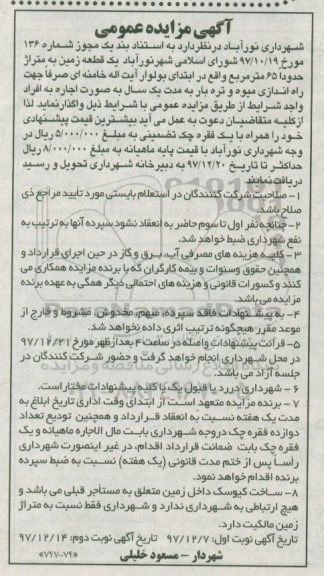 آگهی مزایده عمومی
شهرداری نورآباد درنظر دارد به استناد بند یک مجوز شماره ۱۳۶
مورخ ۹۷/۱۰/۱۹ شورای اسلامی شهر نورآباد یک قطعه زمین به متراژ
حدوداً ۶۵ مترمربع واقع در ابتدای بولوار آیت اله خامنه ای صرفاً جهت
راه اندازی میوه و تره بار به مدت یک سال به صورت اجاره به افراد
واجد شرایط از طریق مزایده عمومی با شرایط ذیل واگذار نماید. لذا
از کلیه متقاضیان دعوت به عمل می آید بیشترین قیمت پیشنهادی
خود را همراه با یک فقره چک تضمینی به مبلغ ۵/۰۰۰/۰۰۰ ریال در
وجه شهرداری نورآباد با قیمت پایه ماهیانه به مبلغ ۸/۰۰۰/۰۰۰ ریال
حداکثر تا تاریخ ۹۷/۱۲/۲۰ به دبیرخانه شهرداری تحویل و رسید
دریافت نمایند.
۱- صلاحیت شرکت کنندگان در استعلام بایستی مورد تایید مراجع ذی
صلاح باشد.
۲- چنانچه نفر اول تا سوم حاضر به انعقاد نشود سپرده آنها به ترتیب به
نفع شهرداری ضبط خواهد شد.
۳- کلیه هزینه های مصرفی آب، برق و گاز در حین اجرای قرارداد و
همچنین حقوق وسنوات و بیمه کارگران که با برنده مزایده همکاری می
کنند و کسورات قانونی و هزینه های احتمالی دیگر همگی به عهده برنده
مزایده می باشد.
۴- به پیشنهادات فاقد سپرده، مبهم، مخدوش، مشروط و خارج از
موعد مقرر هیچگونه ترتیب اثری داده نخواهد شد.
۵- قرائت پیشنهادات واصله در ساعت ۴ بعدازظهر مورخ ۹۷/۱۲/۲۱
در محل شهرداری انجام خواهد گرفت و حضور شرکت کنندگان در
جلسه آزاد می باشد.
۶- شهرداری در رد یا قبول یک یا کلیه پیشنهادات مختار است.
۷- برنده مزایده متعهد است از ابتدای وقت اداری تاریخ ابلاغ به
مدت یک هفته نسبت به انعقاد قرارداد و همچنین تودیع تعداد
دوازده فقره چک دروجه شهرداری بابت مال الاجاره ماهیانه و یک
فقره چک بابت ضمانت قرارداد اقدام، در غیر اینصورت شهرداری
راساً پس از ختم مدت قانونی (یک هفته) نسبت به ضبط سپرده
برنده اقدام خواهد نمود.
۸- ساخت کیوسک داخل زمین متعلق به مستأجر قبلی می باشد و
هیچ ارتباطی به شهرداری ندارد و شهرداری فقط نسبت به متراژ
زمین مالکیت دارد.
تاریخ آگهی نوبت اول: ۹۷/۱۲/۷ تاریخ آگهی نوبت دوم: ۹۷/۱۲/۱۴
شهردار - مسعود خلیلی «۷۴۷-۷۴»